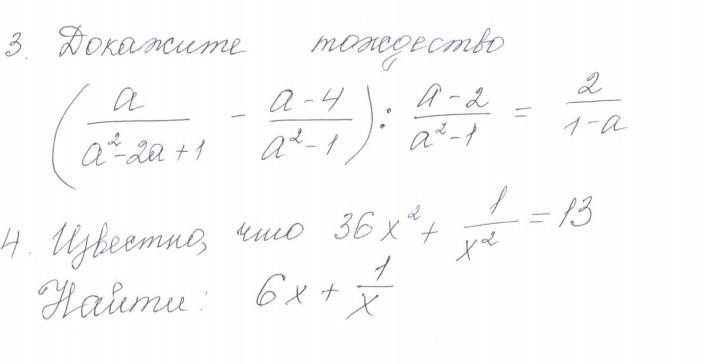 3. Докажите тождество
(a/(a²-2a+1) - (a-4)/(a²-1)) : (a-2)/(a²-1) = 2/(1-a)
4. Известно, что 36x² + 1/x² = 13
Найти: 6x + 1/x